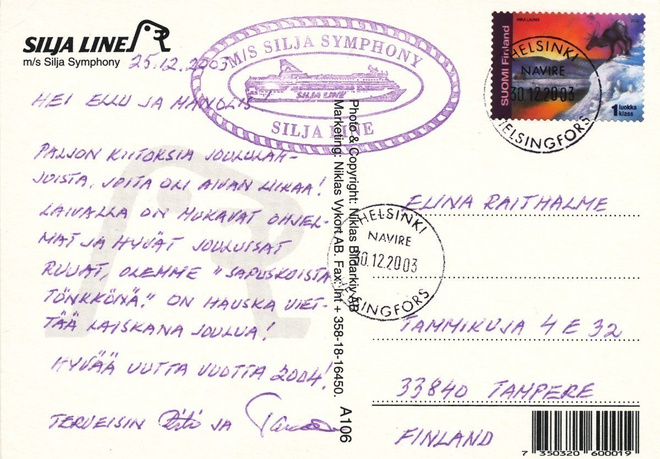 SILJA LINE
m/s Silja Symphony
25.12.2003
M/S SILJA SYMPHONY
SILJA LINE
SILJA LINE
HEI ELLU JA MANOLIS
PALJON KIITOKSIA JOULULAH-
JOISTA, JOITA OLI AIVAN LIIKAA!
LAIVALLA ON MUKAVAT OHJEL-
MAT JA HYVÄT JOULUISSAT
RUUAT, OLEMME "SAPUSKOISTA
TÖNKKÖNÄ." ON HAUSKA VIET-
TÄÄ LAISKANA JOULUA!
HYVÄÄ UUTTA VUOTTA 2004!
TERVEISIN JA
Photo & Copyright: Niklas Bildarkiv AB
Marketing: Niklas Vykort AB. Fax: Int + 358-18-16450.
A106
SUOMI Finland
1 luokka
klass
HELSINKI
NAVIRE
30.12.2003
HELSINGFORS
HELSINKI
NAVIRE
30.12.2003
HELSINGFORS
ELINA RAITHALME
TAMMIKUJA 4 E 32
33840 TAMPERE
FINLAND
7 350320 600019